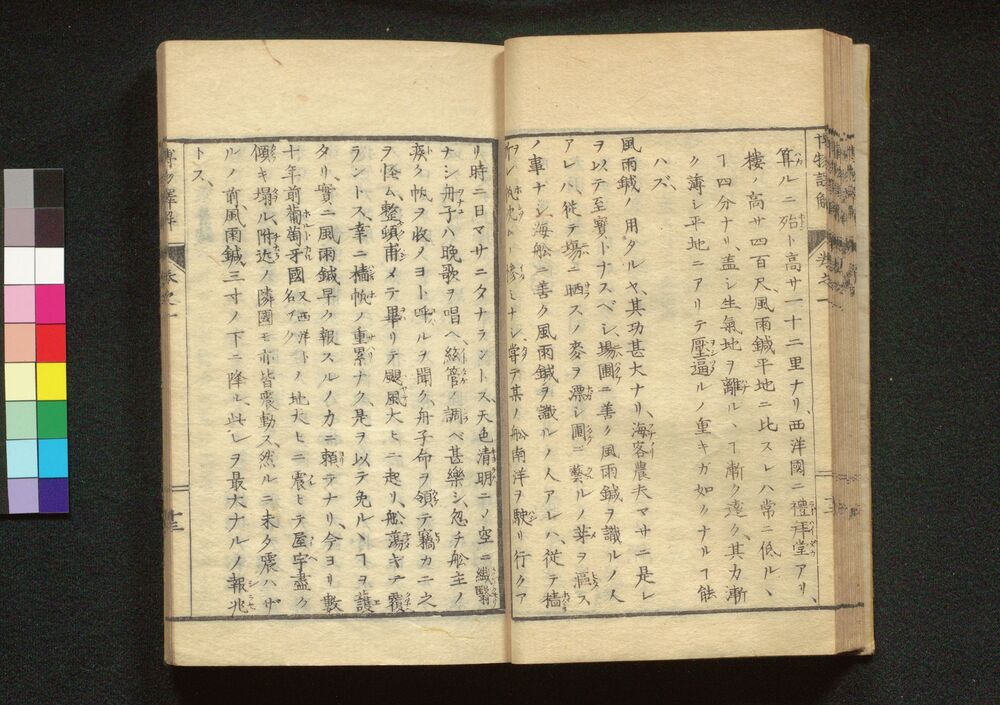 算ルニ殆ト高サ一十二里ナリ、西洋國ニ禮拜堂アリ、
樓ノ高サ四百尺、風雨鍼平地ニ比スレハ常ニ低ルヽ
ヿ四分ナリ、盖シ生氣地ヲ離ルヽヿ漸ク遠ク、其力漸
ク薄シ平地ニアリテ壓逼ルノ重キガ如クナルヿ能
ハズ、
風雨鍼ノ用タルヤ、其功甚大ナリ、海客農夫マサニ是レ
ヲ以テ至寶トナスベシ、場圃ニ善ク風雨鍼ヲ識ルノ人
アレハ、徙テ場ニ晒スノ麥ヲ漂シ圃ニ藝ルノ菲ヲ漚ス
ノ事ナシ、海船ニ善ク風雨鍼ヲ識ルノ人アレハ、從テ檣
ナシ、嘗テ某ノ船南洋ヲ駛リ行クア
リ時ニ日マサニタナラントス、天色清明ニノ空ニ纎翳
ナシ舟子ハ晩歌ヲ唱ヘ絃管ノ調ベ甚樂シ、忽チ船主ノ
疾ク帆ヲ收ノヨト呼ルヲ聞ク、舟子命ヲ領テ竊カニ之
ヲ怪ム、整頓甫メテ畢リテ颶風大ヒニ起リ、船蕩キテ覆
ラントス、幸ニ檣帆ノ重累ナク、是ヲ以テ免ルヽヿヲ護
タリ、實ニ風雨鍼早ク報スルノ力ニ頼テナリ、今ヨリ數
十年前葡萄牙國又西洋ト名ヅクノ地大ヒニ震ヒテ屋宇盡ク
傾キ塌ル、附近ノ隣國モ亦皆震動ス、然ルニ未タ震ハザ
ルノ前、風雨鍼三寸ノ下ニ降ル、此レヲ最大ナルノ報兆
トス、